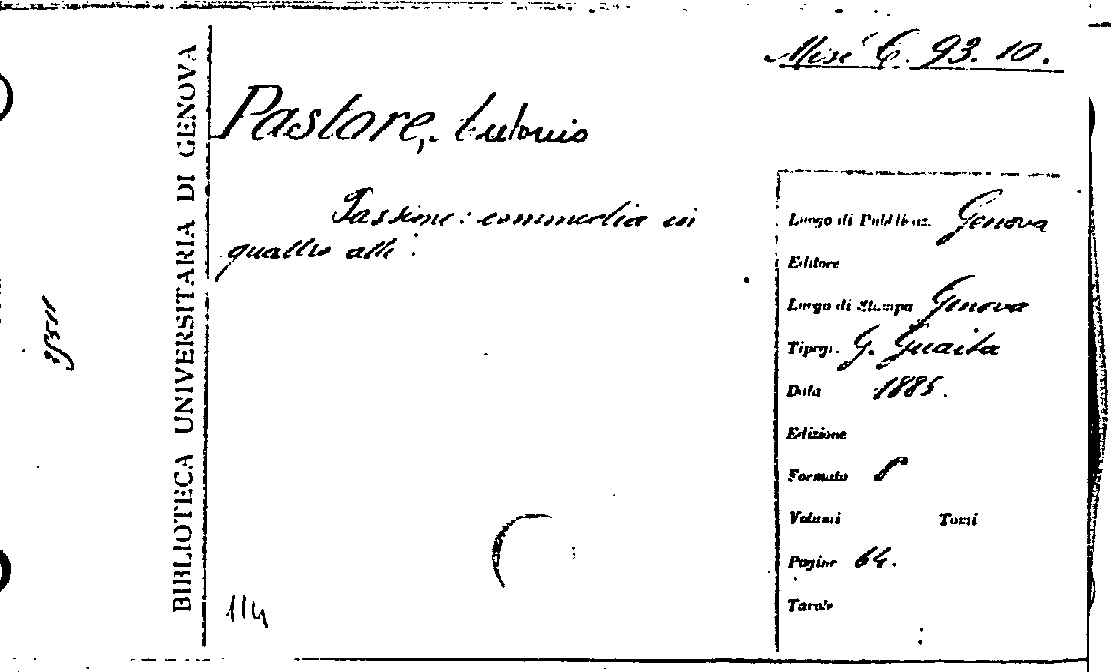 Misc. C. 93. 10.
Pastore, Antonio
Passione: commedia in
quattro atti.
Luogo di Pubblicaz. Genova
Editore
Luogo di Stampa Genova
Tipogr. G. Guaita
Data 1885.
Edizione
Formato 8°
Volumi Tomi
Pagine 64.
Tavole
BIBLIOTECA UNIVERSITARIA DI GENOVA
114